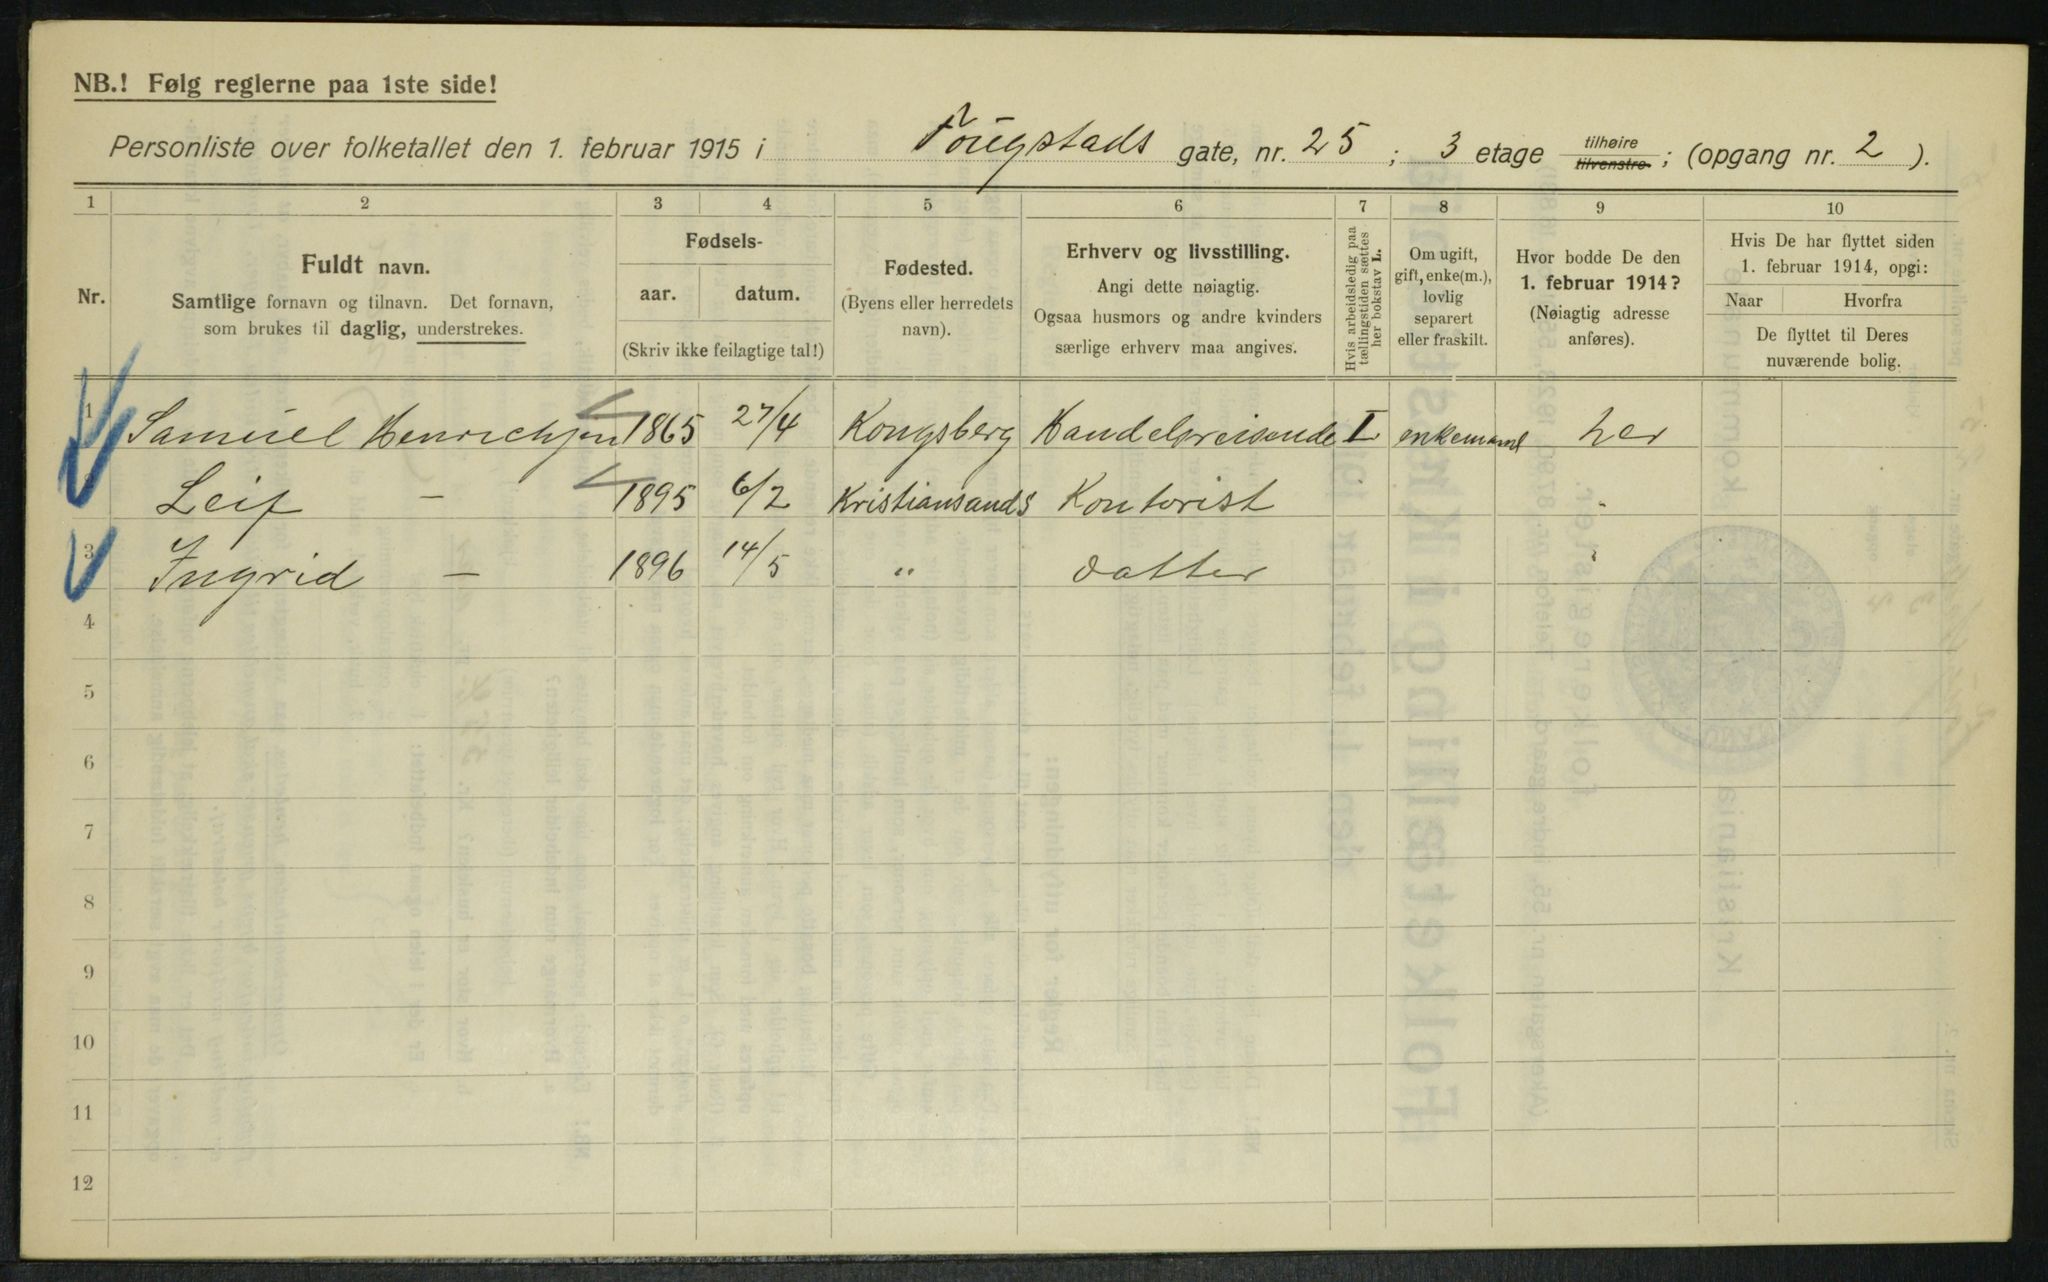 NB.! Følg reglerne paa 1ste side!
Personliste over folketallet den 1. februar 1915 i Fougstads gate, nr. 25 ; 3 etage tilhøire tilvenstre. ; (opgang nr. 2 ).
1 2 3 4 5 6 7 8 9 10
Nr.
Fuldt navn.
Samtlige fornavn og tilnavn. Det fornavn,
som brukes til daglig, understrekes.
Fødsels-
aar. datum.
(Skriv ikke feilagtige tal!)
Fødested.
(Byens eller herredets
navn).
Erhverv og livsstilling.
Angi dette nøiagtig.
Ogsaa husmors og andre kvinders
særlige erhverv maa angives.
Hvis arbeidsledig paa
tællingstiden sættes
her bokstav L.
Om ugift,
gift, enke(m.),
lovlig
separert
eller fraskilt.
Hvor bodde De den
1. februar 1914?
(Nøiagtig adresse
anføres).
Hvis De har flyttet siden
1. februar 1914, opgi:
Naar Hvorfra
De flyttet til Deres
nuværende bolig.
1 Samuel Henrichsen 1865 27/4 Kongsberg Handelsreisende I enkemand her
2 Leif — 1895 6/2 Kristiansands Kontorist "
3 Ingrid — 1896 14/5 " datter "
4
5
6
7
8
9
10
11
12